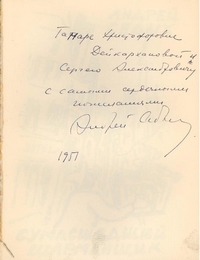 Тамаре Христофоровне
Дейкархановой и
Сергею Александровичу
с самыми сердечными
пожеланиями
Андрей
1951